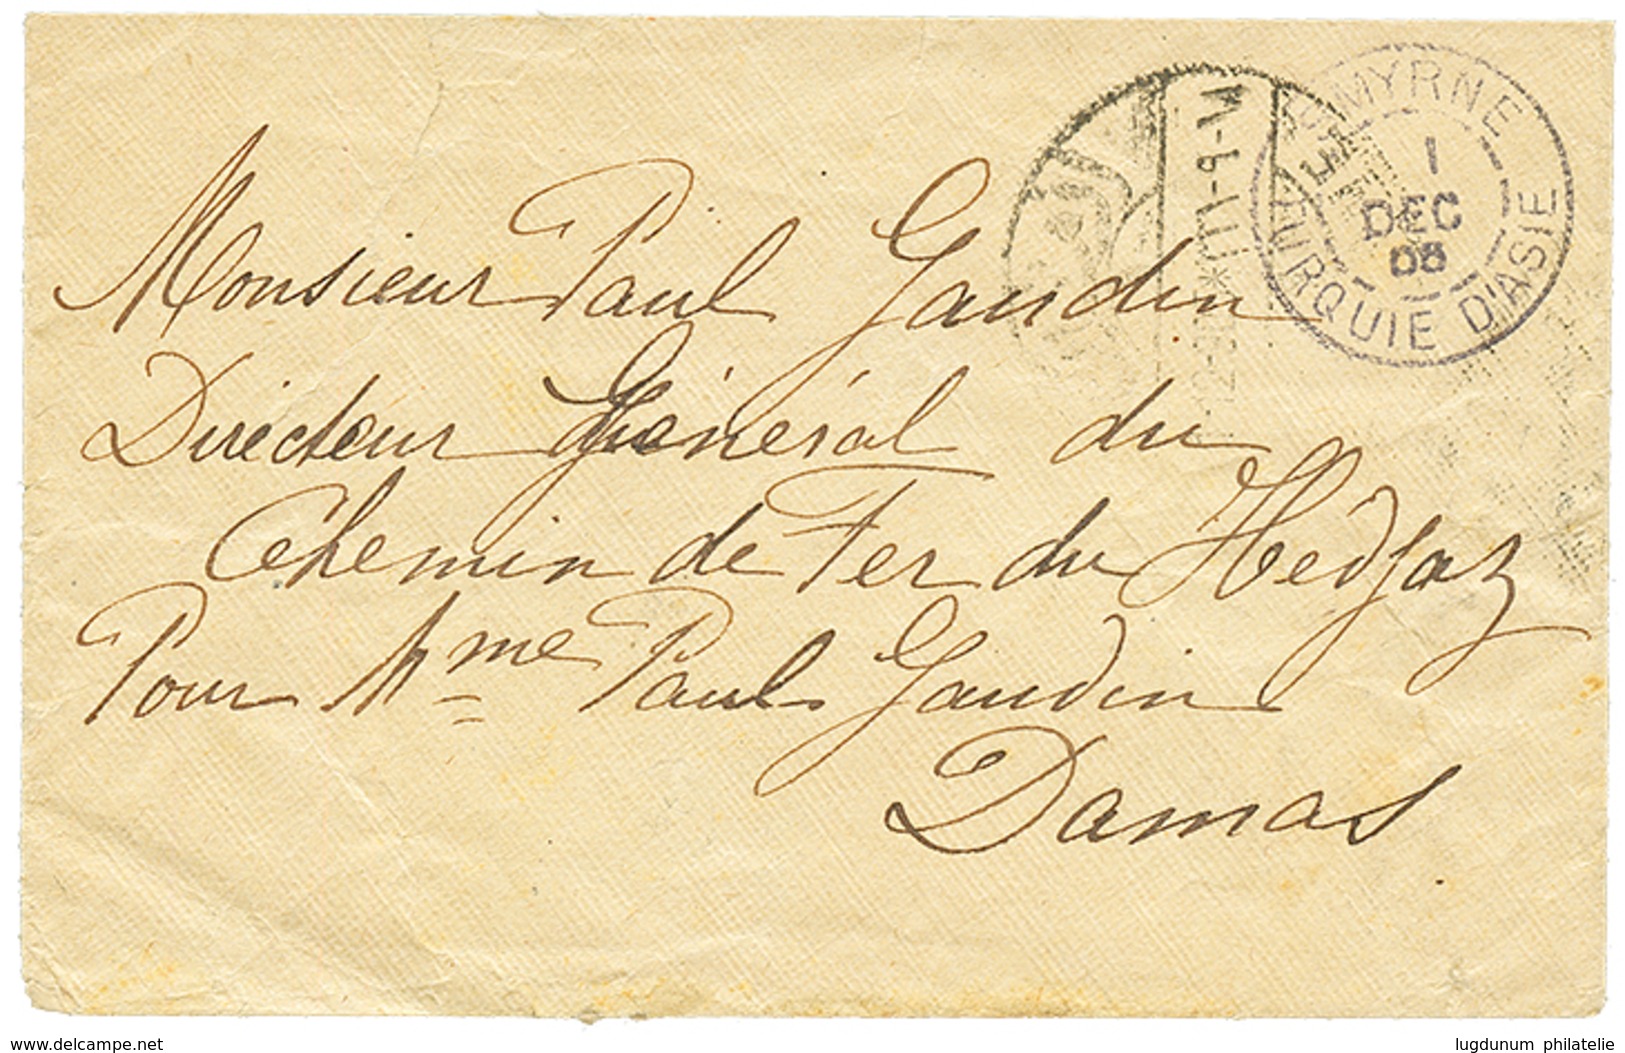 SMYRNE
1
DEC
08
TURQUIE D'ASIE
Monsieur Paul Gaudin
Directeur Général du
Chemin de Fer du Hédjaz
Pour Mme Paul Gaudin
Damas
www.delcampe.net
lugdunum philatelie